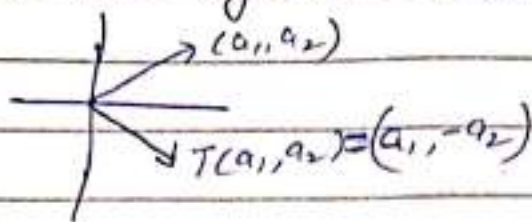 (a₁, a₂)
T(a₁, a₂) = (a₁, -a₂)